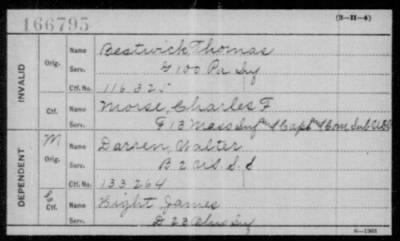 166795
(3-II-4)
INVALID
Orig.
Name Bestwick Thomas
Serv. G 100 Pa Inf
Ctf. No. 116325
Ctf.
Name Morse, Charles F
Serv. F 13 Mass Inf & Capt & Com Sub
DEPENDENT
M
Orig.
Name Darsen, Walter
Serv. B 2 U.S. S.S
Ctf. No. 133264
C
Ctf.
Name Bight James
Serv. D 23 Inf
6—1903